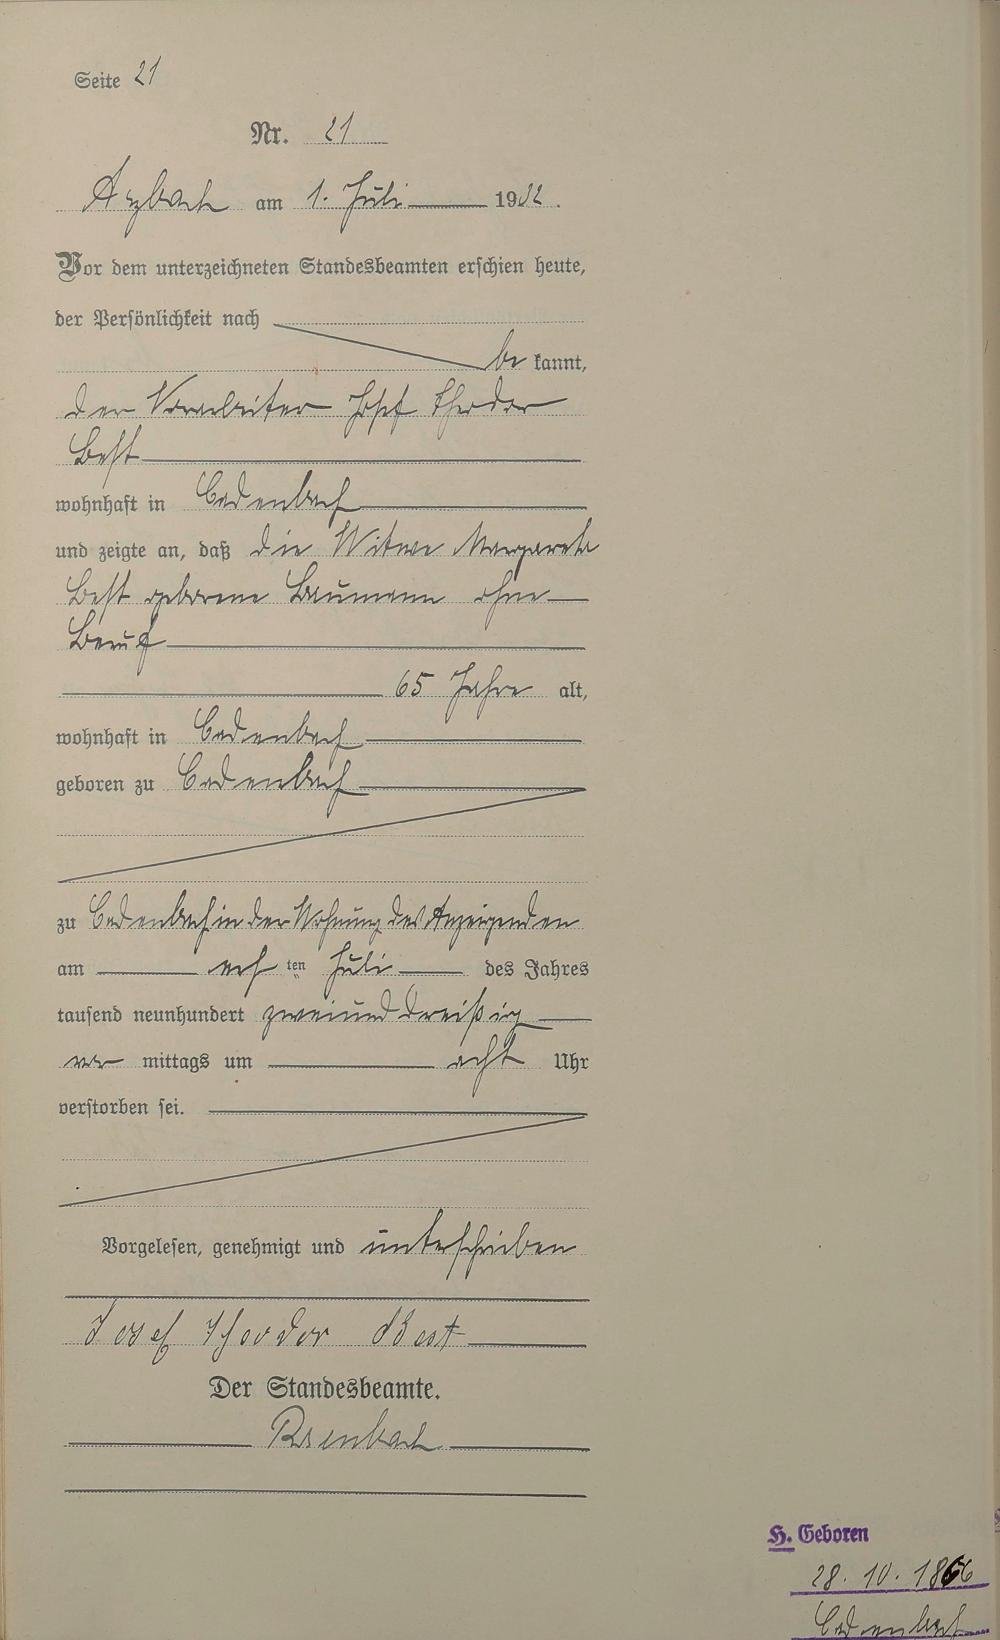 Seite 21
Nr. 21
Arzbach am 1. Juli 1932.
Vor dem unterzeichneten Standesbeamten erschien heute,
der Persönlichkeit nach
be kannt,
der Vorarbeiter Josef Theodor
Best
wohnhaft in Cadenbach
und zeigte an, daß die Witwe Margareta
Best geborene Baumann ohne
Beruf
65 Jahre alt,
wohnhaft in Cadenbach
geboren zu Cadenbach
zu Cadenbach in der Wohnung des Anzeigenden
am ten Juli des Jahres
tausend neunhundert zweiunddreißig
vor mittags um acht Uhr
verstorben sei.
Vorgelesen, genehmigt und unterschrieben
Josef Theodor Best
Der Standesbeamte.
H. Geboren
28. 10. 1866
Cadenbach